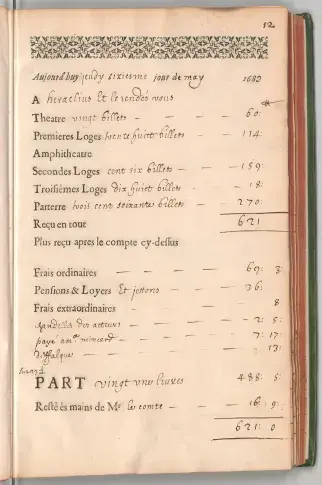 12
Aujourdhuy jeudy sixiesme jour de may 1683
A heraclius Et le rendés vous
Theatre vingt billets — — — 60:
Premieres Loges trente huict billets — — 114:
Amphitheatre
Secondes Loges cent six billets — — 159:
Troisiémes Loges dix huict billets — — 18:
Parterre trois cent soixante billets — — 270:
Reçu en tout 621
Plus reçu apres le compte cy-dessus
Frais ordinaires — — — 69: 3:
Pensions & Loyers Et jettons — — 36:
Frais extraordinaires — — — 8
des acteurs — — 2: 5:
paye — — 7: 17:
— — : 13:
PART vingt une livres 488: 5:
Resté és mains de Mr. le comte — 16: 9:
621: 0